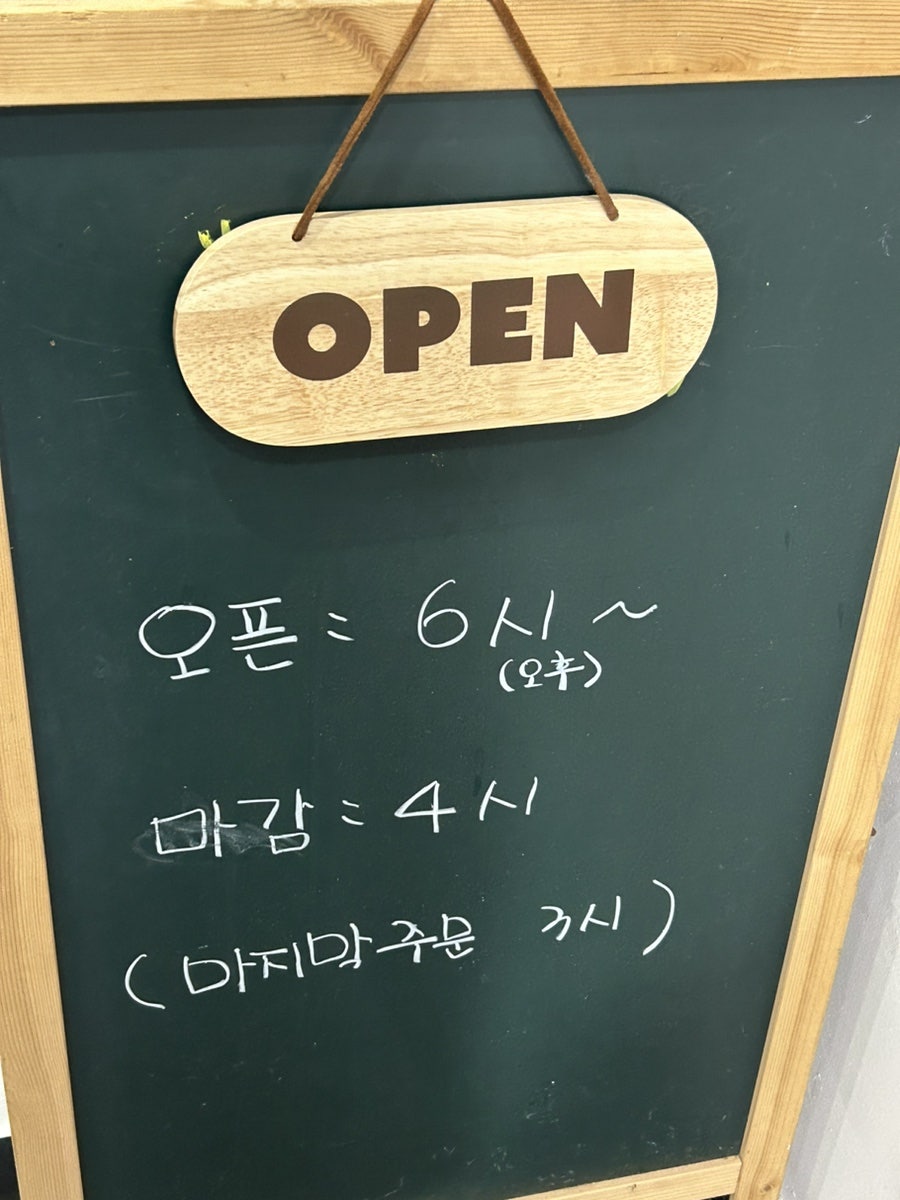 OPEN
오픈 = 6시 ~
(오후)
마감 : 4시
(마지막 주문 3시)